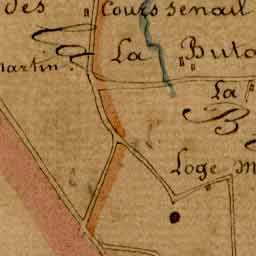 des Cours senail
La Buta
martin.
La B
Loge M